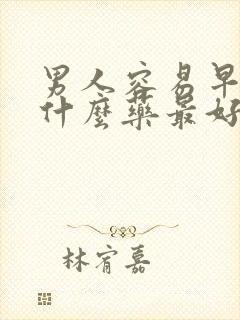 男人容易早
什麼藥最好
林宥嘉